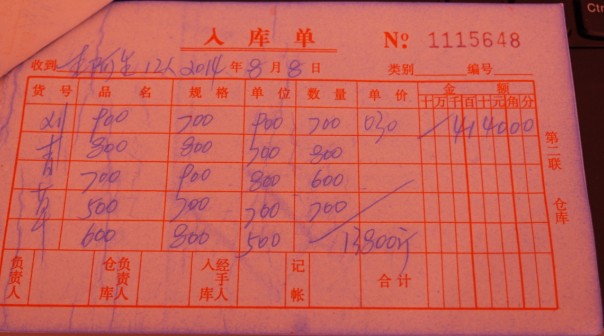 入库单 № 1115648
收到 12人 2014年8月8日 类别 编号
货号 品名 规格 单位 数量 单价 金额
十万千百十元角分
900 700 900 700 030 414000
800 800 500 800
700 900 800 600
500 500 700 700
600 800 500 13800斤
负责人 仓库负责人 入库经手人 记帐 合计
第二联 仓库